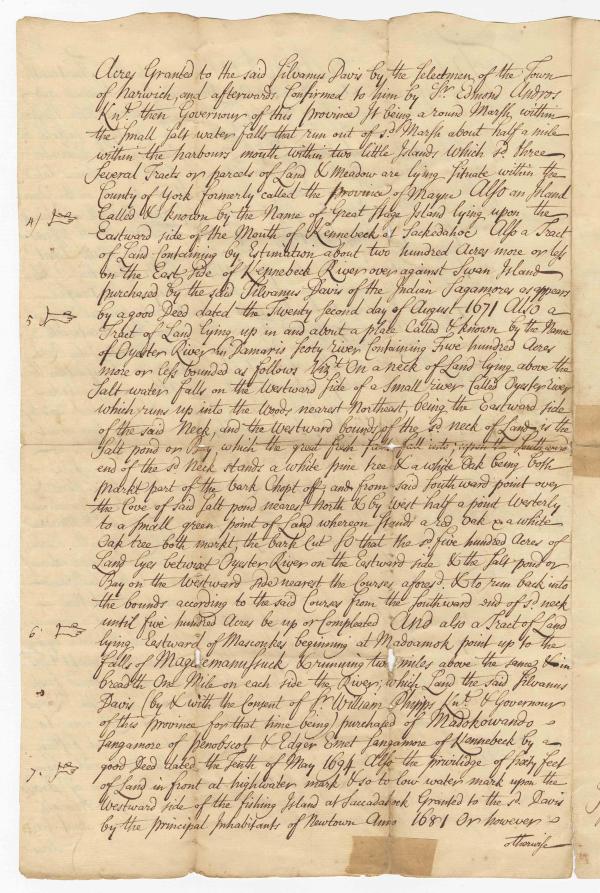 Acres Granted to the said Silvanus Davis by the Selectmen of the Town
of harwich, and afterwards Confirmed to him by Sr. Edmond Andros
Knt. then Governour of this province It being a round Marsh, within
the Small Salt water falls that run out of sd. Marsh about half a mile
within the harbours mouth within two little Islands which sd. three
Several Tracts or parcels of Land & Meadow are lying Situate within the
County of York formerly called the province of Mayne Also an Island
4) Called & known by the Name of Great Stage Island lying upon the
Eastward side of the Mouth of Kennebeck at Sackedahoc Also a Tract
of Land Containing by Estimation about two hundred Acres more or less
on the East side of Kennebeck River over against Swan Island
purchased by the said Silvanus Davis of the Indian Sagamores as appears
by a good Deed dated the Twenty Second day of August 1671 Also a
5 Tract of Land lying up in and about a place Called & known by the Name
of Oyster River in Damaris Scoty river Containing Five hundred Acres
more or less bounded as follows Vizt. On a neck of Land lying above the
Salt water falls on the Westward Side of a Small river Called Oyster river
which runs up into the Woods nearest Northeast, being the Eastward side
of the said Neck, and the Westward bounds of the sd. neck of Land is the
Salt pond or Bay which the great fresh falls fall into; upon the
end of the sd Neck stands a white pine tree & a white Oak being both
markt part of the bark Chopt off; and from said Southward point over
the Cove of said Salt pond nearest North & by West half a point Westerly
to a small green point of Land whereon stand a red Oak & a white
Oak tree both markt, the bark Cut So that the sd. five hundred Acres of
Land lyes betwixt Oyster River on the Eastward side & the Salt pond or
Bay on the Westward side nearest the Courses aforesd. & to run back into
the bounds according to the said Courses from the Southward end of sd. neck
until five hundred Acres be up or Compleated And also a Tract of Land
6 lying Eastward of Masconkes beginning at Madoamok point up to the
falls of Magesemanussuck & running two miles above the same & in
breadth One Mile on each side the River, which Land the said Silvanus
Davis (by & with the Consent of Sr. William Phipps Knt. & Governour
of this province for that time being) purchased of Madokowando
Sangamore of penobscot & Edger Emet Sangamore of Kennebeck by a
good Deed dated the Tenth of May 1694 Also the priviledge of Sixty feet
7. of Land in front at highwater mark & so to low water mark upon the
Westward side of the fishing Island at Saccadahock Granted to the sd. Davis
by the principal Inhabitants of Newtown Anno 1681 Or however
otherwise